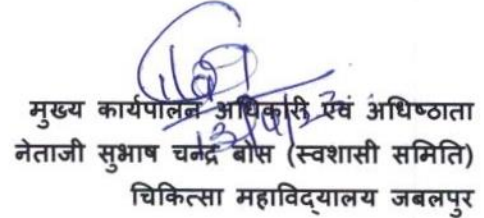 मुख्य कार्यपालन अधिकारी एवं अधिष्ठाता
नेताजी सुभाष चन्द्र बोस (स्वशासी समिति)
चिकित्सा महाविद्यालय जबलपुर